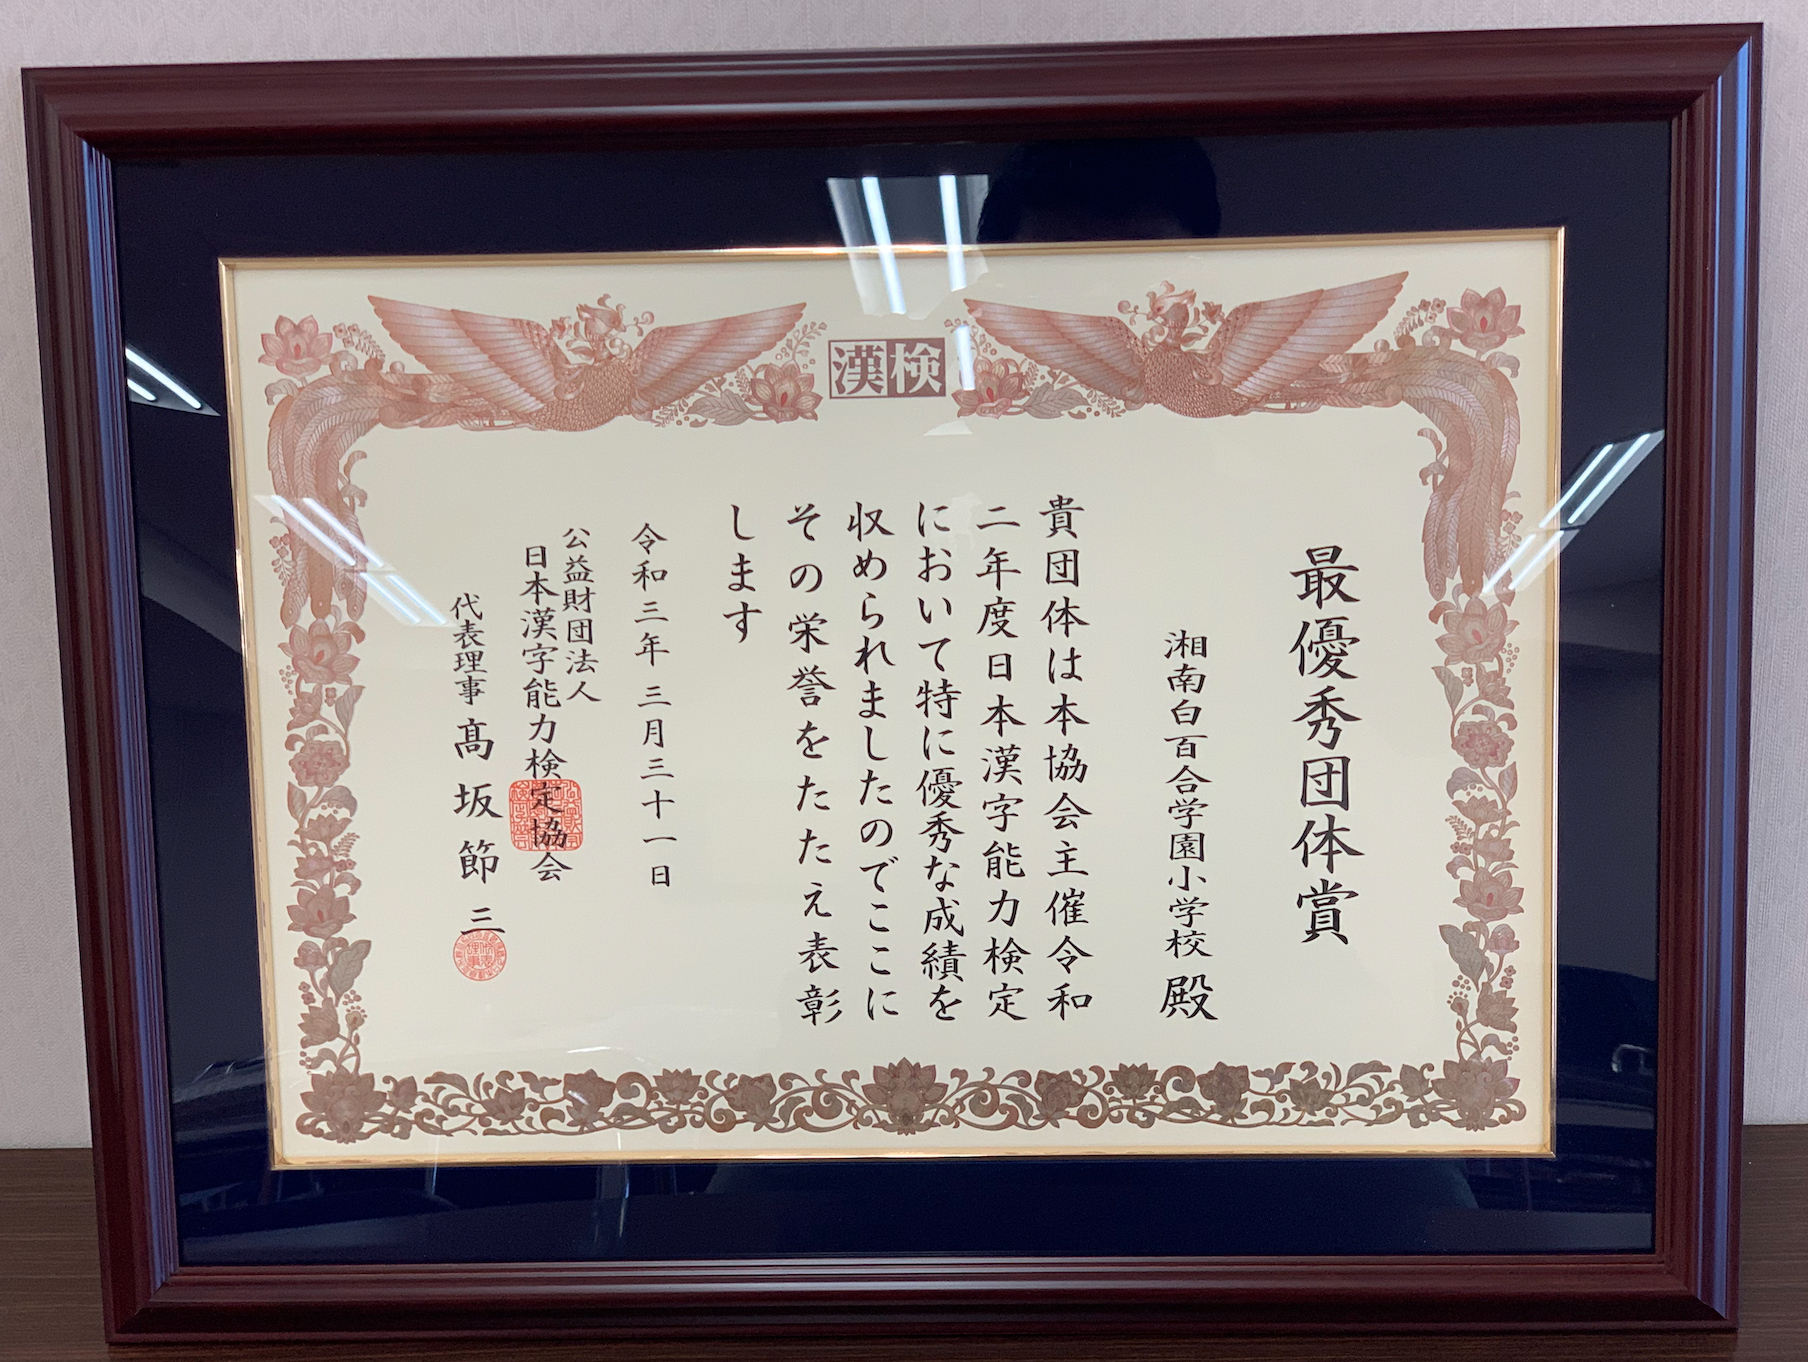 漢検
最優秀団体賞
湘南白百合学園小学校 殿
貴団体は本協会主催令和
二年度日本漢字能力検定
において特に優秀な成績を
収められましたのでここに
その栄誉をたたえ表彰
します
令和三年三月三十一日
公益財団法人
日本漢字能力検定協会
代表理事 髙坂節三